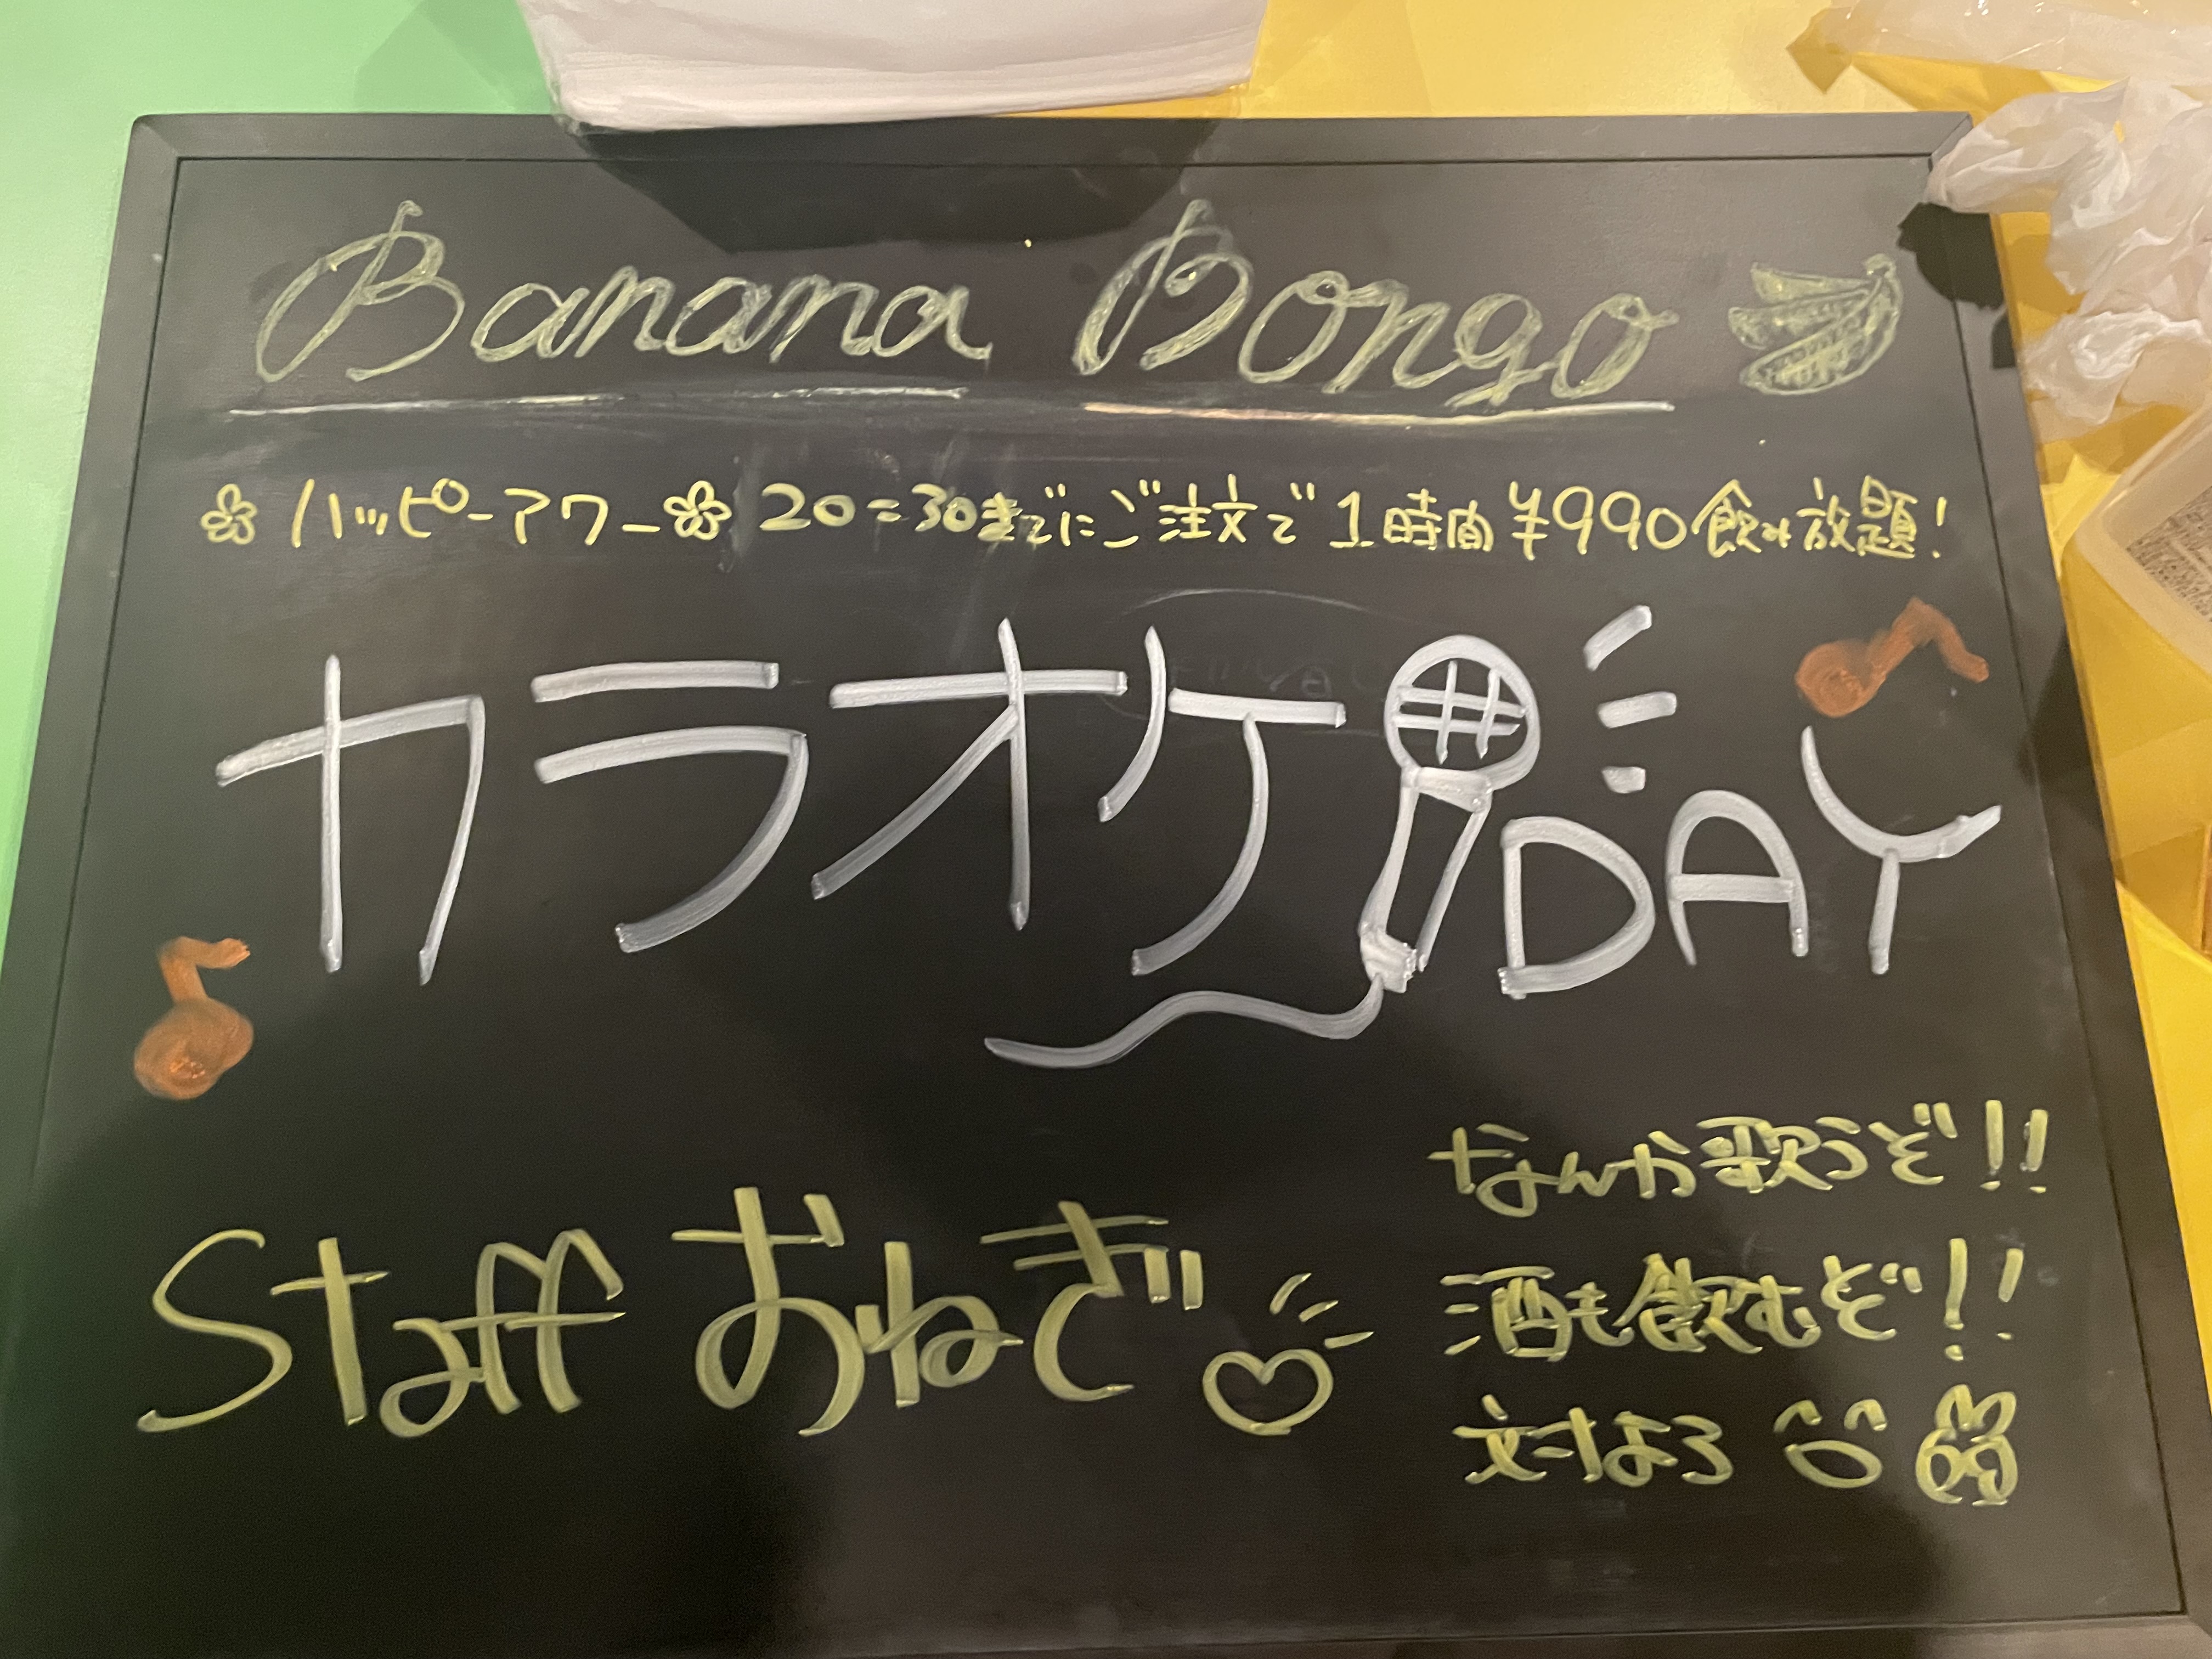 Banana Bongo
ハッピーアワー 20:30までにご注文で1時間¥990飲み放題!
カラオケDAY
なんか歌うぞ!!
Staff おねぎ
酒も飲むぞ!!
対よろ